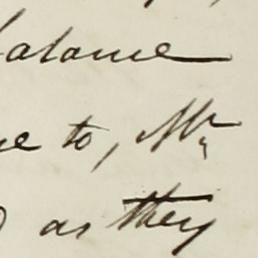 balance
to, Mr
as they